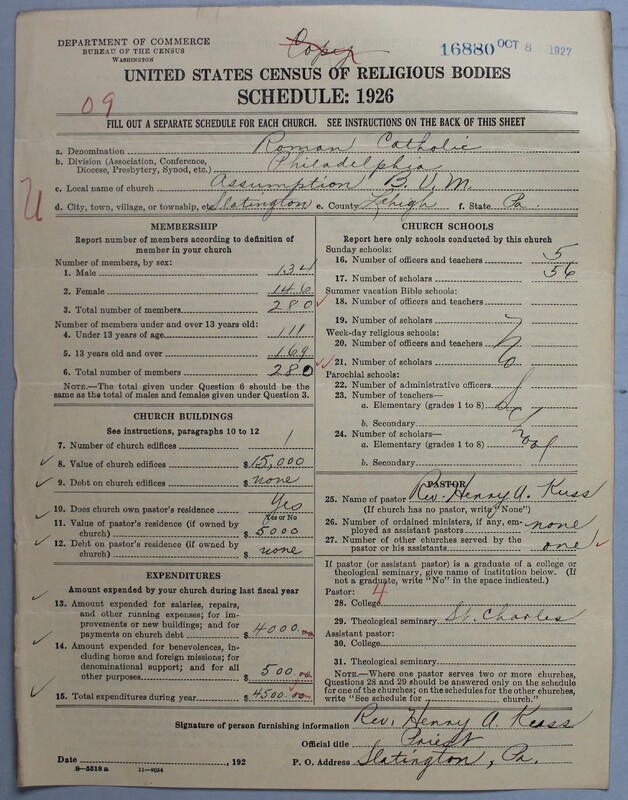 DEPARTMENT OF COMMERCE
BUREAU OF THE CENSUS
WASHINGTON
Copy
16880 OCT 8 1927
UNITED STATES CENSUS OF RELIGIOUS BODIES
SCHEDULE: 1926
09
FILL OUT A SEPARATE SCHEDULE FOR EACH CHURCH. SEE INSTRUCTIONS ON THE BACK OF THIS SHEET
a. Denomination Roman Catholic
b. Division (Association, Conference, Diocese, Presbytery, Synod, etc.) Philadelphia
c. Local name of church Assumption B.V.M.
U
d. City, town, village, or township, etc. Slatington e. County Lehigh f. State Pa.
MEMBERSHIP
Report number of members according to definition of
member in your church
Number of members, by sex:
1. Male 134
2. Female 146
3. Total number of members 280
Number of members under and over 13 years old:
4. Under 13 years of age 111
5. 13 years old and over 169
6. Total number of members 280
NOTE.—The total given under Question 6 should be the
same as the total of males and females given under Question 3.
CHURCH BUILDINGS
See instructions, paragraphs 10 to 12
7. Number of church edifices 1
8. Value of church edifices $15,000
9. Debt on church edifices $none
10. Does church own pastor's residence Yes
Yes or No
11. Value of pastor's residence (if owned by
church) $5000
12. Debt on pastor's residence (if owned by
church) $none
EXPENDITURES
Amount expended by your church during last fiscal year
13. Amount expended for salaries, repairs,
and other running expenses; for im-
provements or new buildings; and for
payments on church debt $4000.00
14. Amount expended for benevolences, in-
cluding home and foreign missions; for
denominational support; and for all
other purposes $500.00
15. Total expenditures during year $4500.00
CHURCH SCHOOLS
Report here only schools conducted by this church
Sunday schools:
16. Number of officers and teachers 5
17. Number of scholars 56
Summer vacation Bible schools:
18. Number of officers and teachers
19. Number of scholars
Week-day religious schools:
20. Number of officers and teachers No
21. Number of scholars
Parochial schools:
22. Number of administrative officers
23. Number of teachers—
a. Elementary (grades 1 to 8) School
b. Secondary
24. Number of scholars—
a. Elementary (grades 1 to 8)
b. Secondary
PASTOR
25. Name of pastor Rev. Henry A. Kuss
(If church has no pastor, write "None")
26. Number of ordained ministers, if any, em-
ployed as assistant pastors none
27. Number of other churches served by the
pastor or his assistants one
If pastor (or assistant pastor) is a graduate of a college or
theological seminary, give name of institution below. (If
not a graduate, write "No" in the space indicated.)
Pastor: 4
28. College
29. Theological seminary St. Charles
Assistant pastor:
30. College
31. Theological seminary
NOTE.—Where one pastor serves two or more churches,
Questions 28 and 29 should be answered only on the schedule
for one of the churches; on the schedules for the other churches,
write "See schedule for church."
Signature of person furnishing information Rev. Henry A. Kuss
Official title Priest
Date , 192 P. O. Address Slatington, Pa.
8—5518a 11—9054